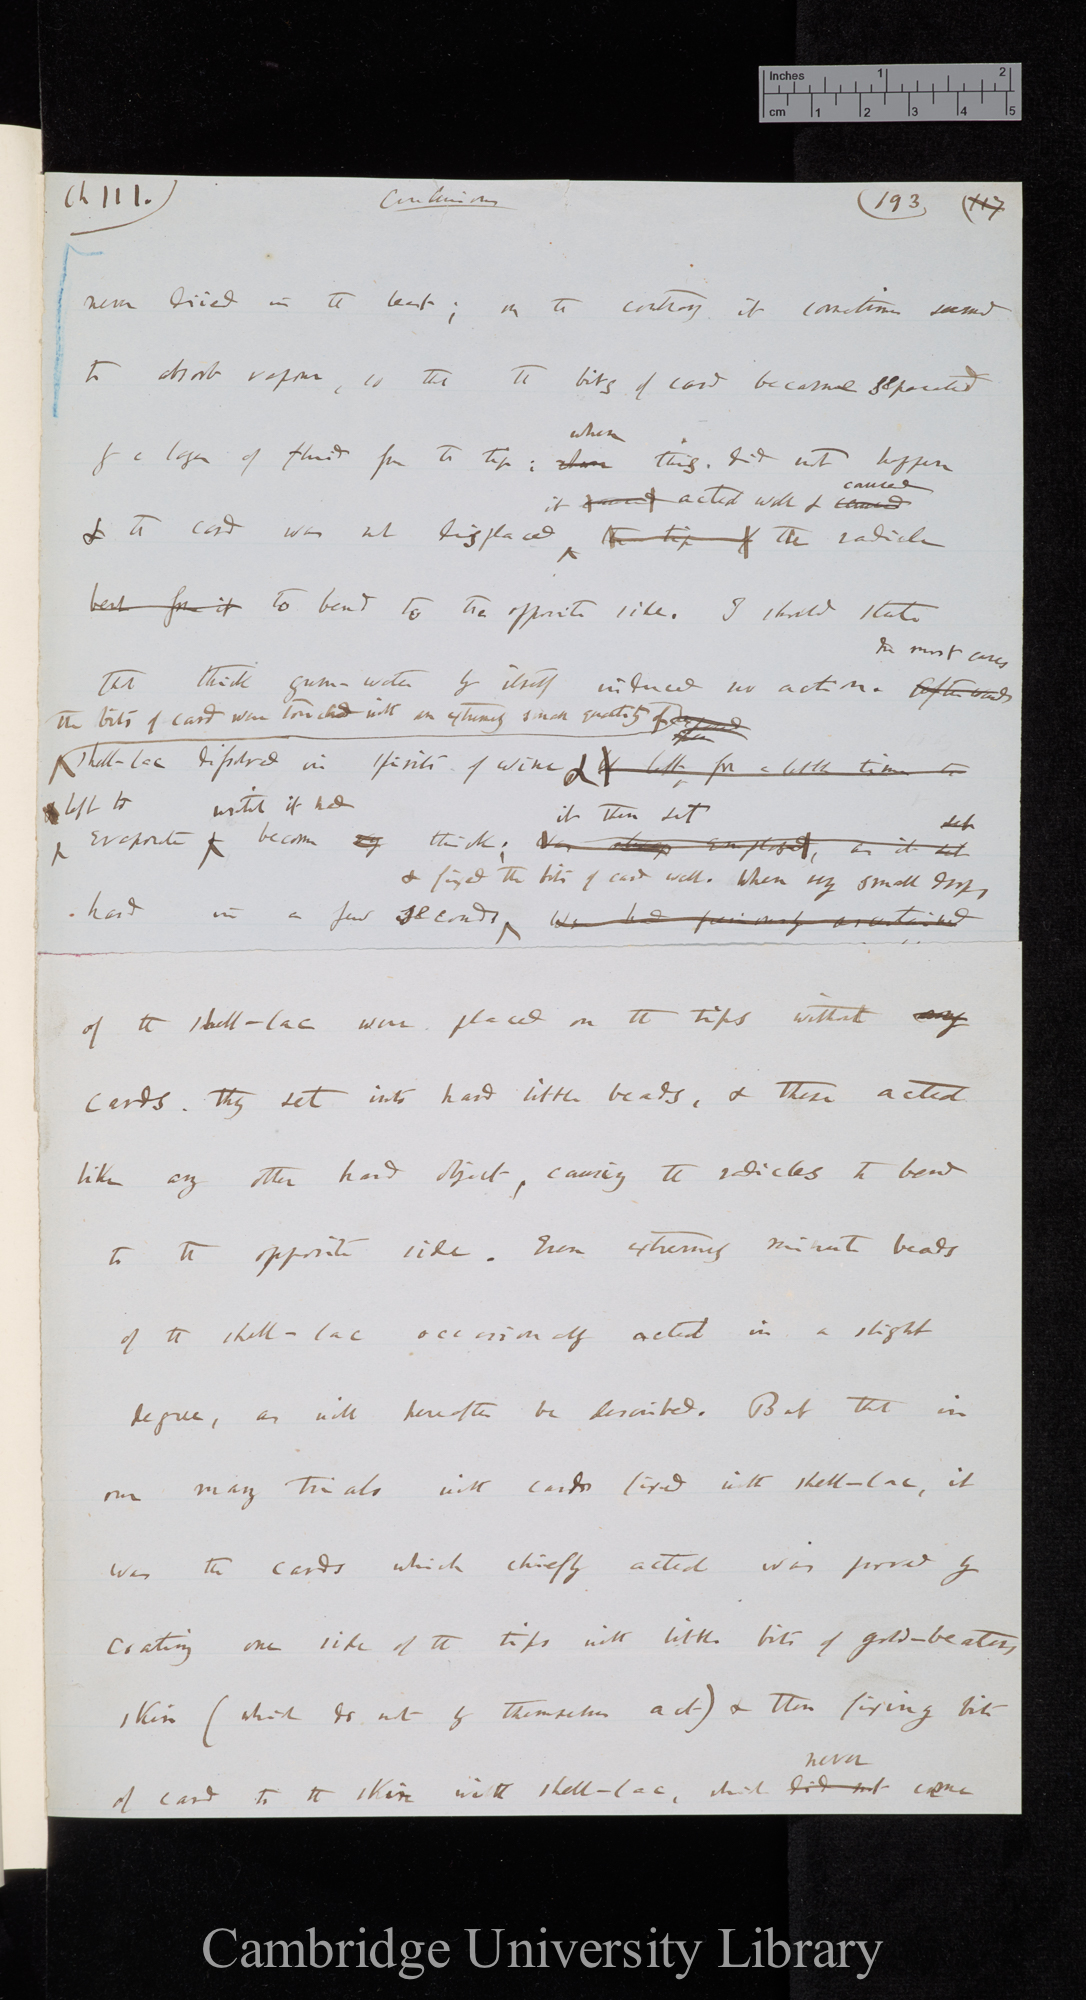 Inches 1 2
cm 1 2 3 4 5
Ch III.
(193) (117)
never dried in the least; on the contrary it sometimes seemed
to absorb vapour, so that the bits of card became separated
by a layer of fluid from the tip; when this did not happen
it acted well & caused
& the card was not displaced the tip the radicle
bent from it to bend to the opposite side. I should state
In most cases
that thick gum-water by itself induced no action. Afterwards
the bits of card were touched with an extremely small quantity of
shell-lac dissolved in spirits of wine & left for a little time to
left to until it had
evaporate & become thick; was always employed, as it set
it then set
& fixed the bits of card well. When very small drops
hard in a few seconds, We had previously ascertained
of the shell-lac were placed on the tips without any
cards. they set into hard little beads, & these acted
like any other hard object, causing the radicles to bend
to the opposite side. Even extremely minute beads
of the shell-lac occasionally acted in a slight
degree, as will hereafter be described. But that in
our many trials with cards fixed with shell-lac, it
was the cards which chiefly acted was proved by
coating one side of the tips with little bits of gold-beaters
skin (which do not by themselves act) & then fixing bits
never
of card to the skin with shell-lac, which did not came
Cambridge University Library